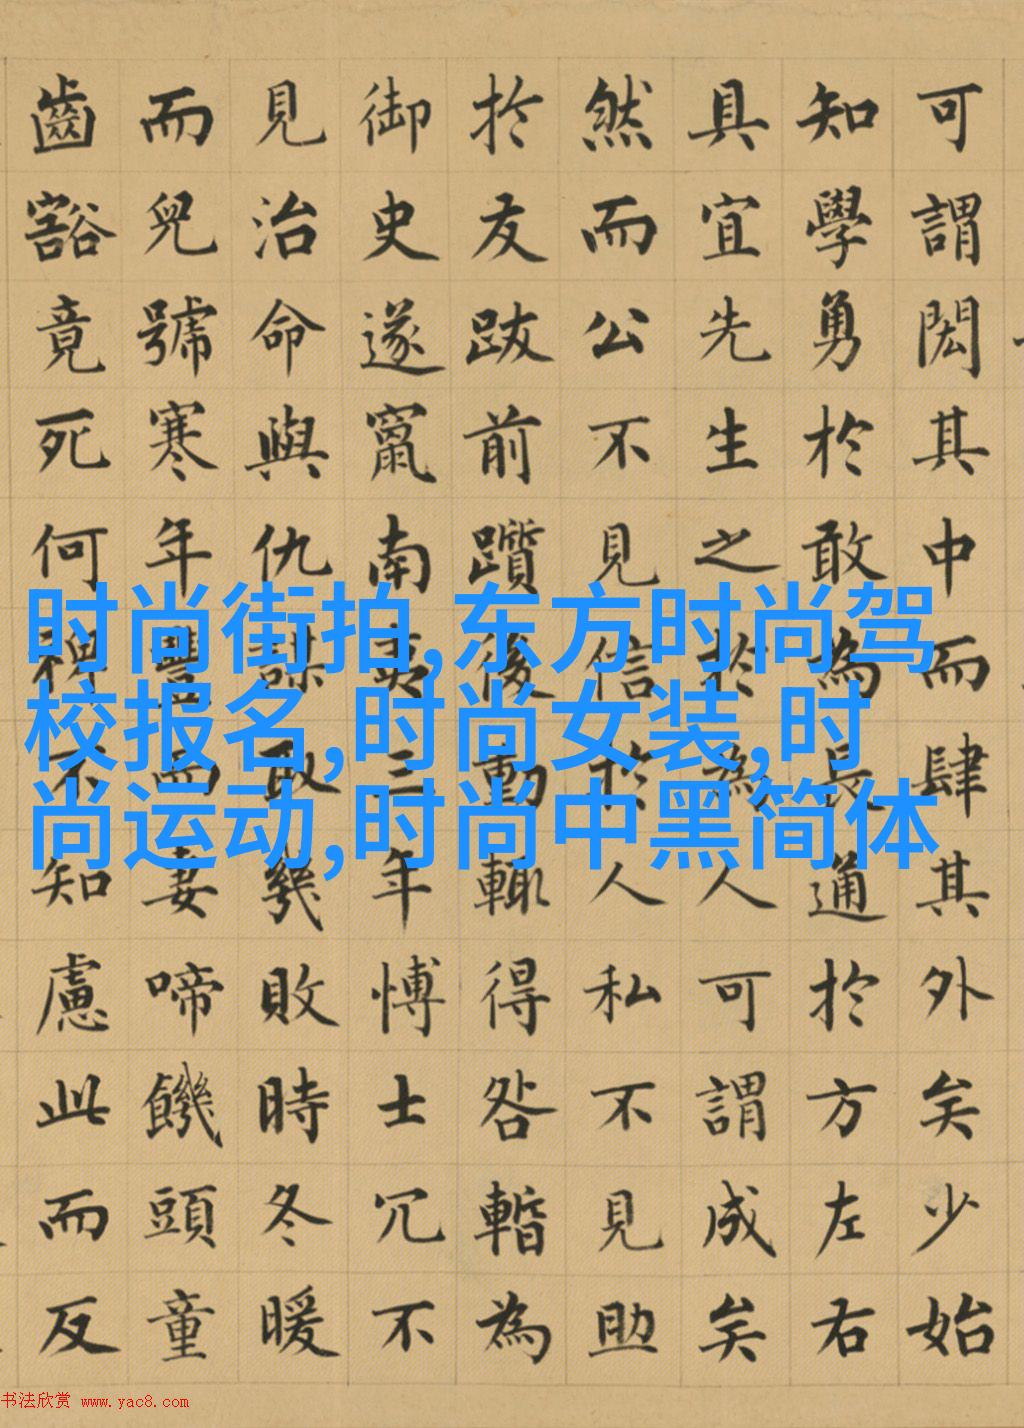 可謂閎其中而肆其外矣少始
知學勇於敢為長通於方左右
具宜先生之於為人可謂成矣
然而公不見信於人私不見助
於友跋前躓後動輒得咎暫為
御史遂竄南夷三年博士冗不
見治命與仇謀取幾敗時冬暖
而兒號寒年豐而妻啼饑頭童
齒豁竟死何裨不知慮此而反
时尚街拍,东方时尚驾
校报名,时尚女装,时
尚运动,时尚中黑简体
书法欣赏 www.yac8.com